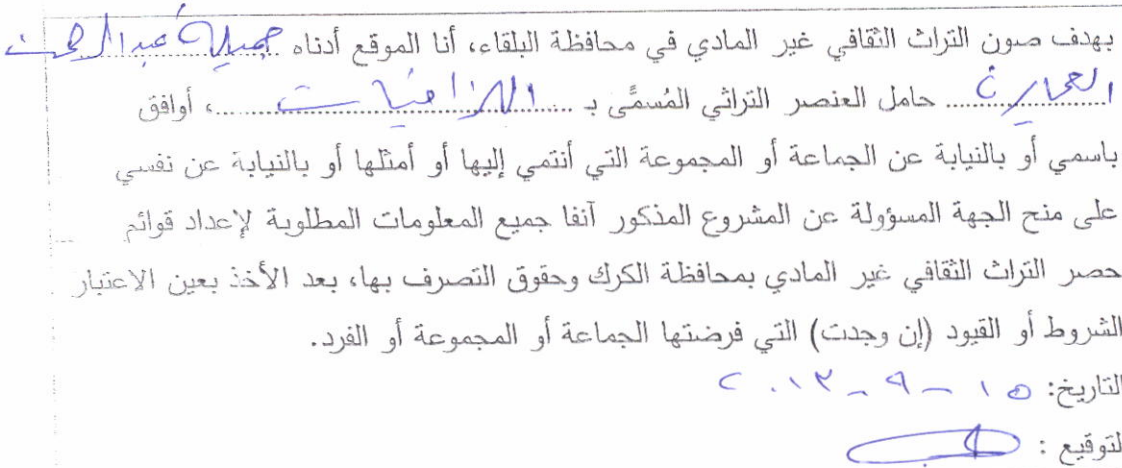 بهدف صون التراث الثقافي غير المادي في محافظة البلقاء، أنا الموقع أدناه جميلة عبد الرحمن
........ حامل العنصر التراثي المُسمَّى بـ ........، أوافق
باسمي أو بالنيابة عن الجماعة أو المجموعة التي أنتمي إليها أو أمثلها أو بالنيابة عن نفسي
على منح الجهة المسؤولة عن المشروع المذكور آنفا جميع المعلومات المطلوبة لإعداد قوائم
حصر التراث الثقافي غير المادي بمحافظة الكرك وحقوق التصرف بها، بعد الأخذ بعين الاعتبار
الشروط أو القيود (إن وجدت) التي فرضتها الجماعة أو المجموعة أو الفرد.
التاريخ: ١٥ - ٩ - ٢٠١٣
لتوقيع :